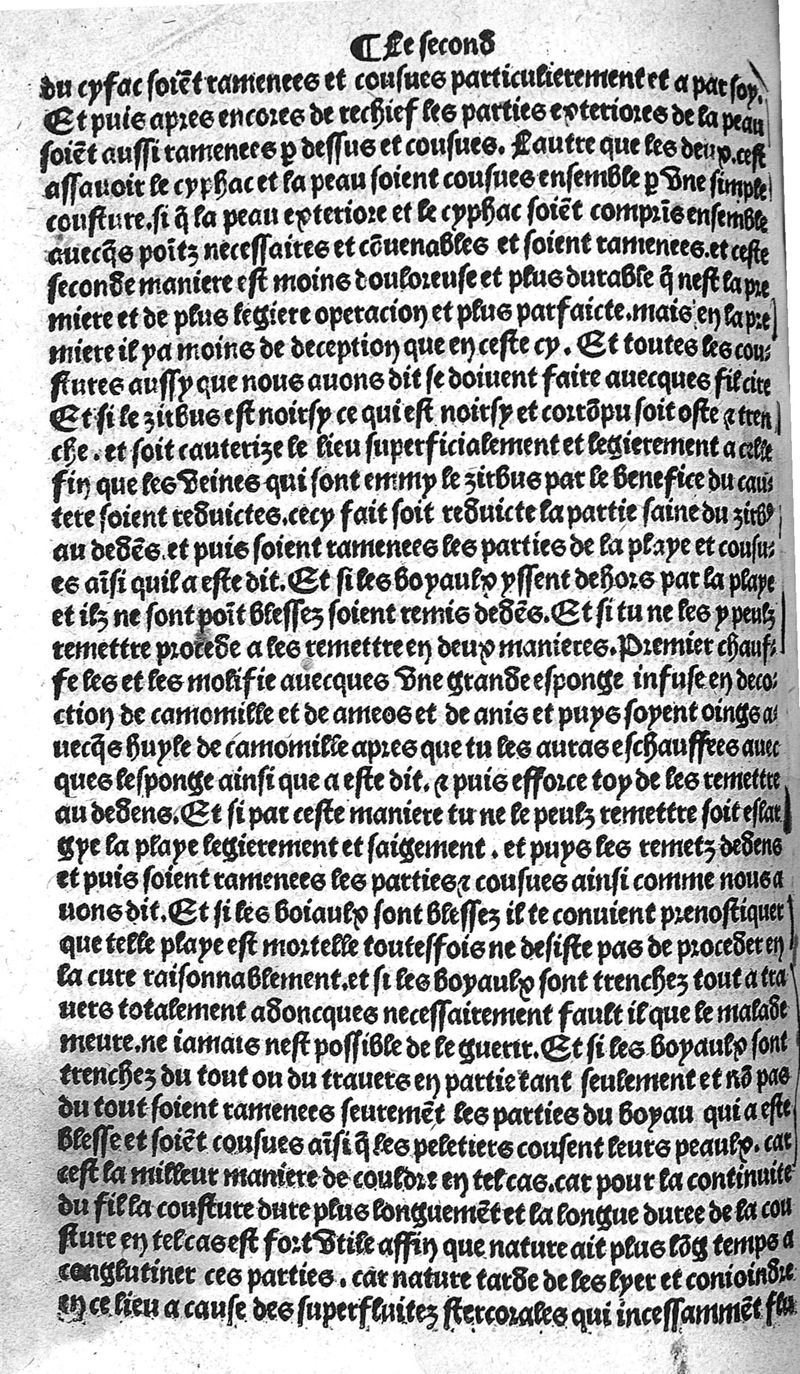 ¶ Le second
du cyfac soiẽt ramenees et cousues particulierement et a par soy.
Et puis apres encores de rechief les parties exteriores de la peau
soiẽt aussi ramenees ꝑ dessus et cousues. Lautre que les deux. cest
assavoir le cyphac et la peau soient cousues ensemble ꝑ vne simple
cousture. si q̃ la peau exteriore et le cyphac soiẽt comprĩs ensemble
auecq̃s poĩtz necessaires et cõuenables et soient ramenees. et ceste
seconde maniere est moins douloreuse et plus durable q̃ nest la pre
miere et de plus legiere operacion et plus parfaicte. mais en la pre
miere il ya moins de deception que en ceste cy. Et toutes les cou⸗
stures aussy que nous auons dit se doiuent faire auecques fil cire
Et si le zirbus est noirsy ce qui est noirsy et corrõpu soit oste ⁊ tren
che. et soit cauterize le lieu superficialement et legierement a celle
fin que les veines qui sont emmy le zirbus par le benefice du cau⸗
tere soient reduictes. cecy fait soit reduicte la partie saine du zirbꝰ
au dedẽs. et puis soient ramenees les parties de la playe et cousu⸗
es aĩsi quil a este dit. Et si les boyaulx yssent dehors par la playe
et ilz ne sont poĩt blessez soient remis dedẽs. Et si tu ne les y peulz
remettre procede a les remettre en deux manieres. Premier chauf⸗
fe les et les molifie auecques vne grande esponge infuse en deco⸗
ction de camomille et de ameos et de anis et puys soyent oings a⸗
uecq̃s huyle de camomille apres que tu les auras eschauffees auec
ques lesponge ainsi que a este dit. ⁊ puis efforce toy de les remettre
au dedens. Et si par ceste maniere tu ne le peulz remettre soit eslar
gye la playe legierement et saigement. et puys les remetz dedens
et puis soient ramenees les parties ⁊ cousues ainsi comme nous a
uons dit. Et si les boiaulx sont blessez il te conuient prenostiquer
que telle playe est mortelle toutesfois ne desiste pas de proceder en
la cure raisonnablement. et si les boyaulx sont trenchez tout a tra
uers totalement adoncques necessairement fault il que le malade
meure. ne iamais nest possible de le guerir. Et si les boyaulx sont
trenchez du tout ou du trauers en partie tant seulement et nõ pas
du tout soient ramenees seuremẽt les parties du boyau qui a este
blesse et soiẽt cousues aĩsi q̃ les peletiers cousent leurs peaulx. car
cest la milleur maniere de couldre en tel cas. car pour la continuite
du fil la cousture dure plus longuemẽt et la longue duree de la cou
sture en tel cas est fort vtile affin que nature ait plus lõg temps a
conglutiner ces parties. car nature tarde de les lyer et conioindre
en ce lieu a cause des superfluitez stercorales qui incessammẽt flu